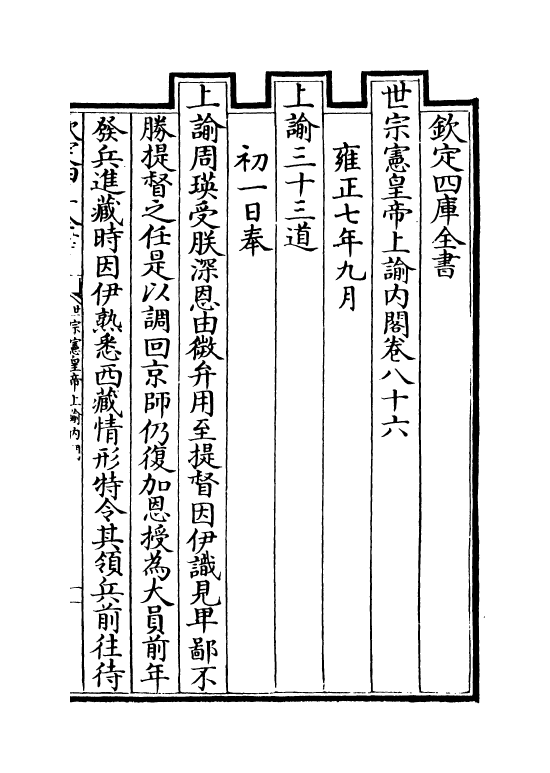 欽定四庫全書
世宗憲皇帝上諭内閣卷八十六
雍正七年九月
上諭三十三道
初一日奉
上諭周瑛受朕深恩由微弁用至提督因伊識見卑鄙不
勝提督之任是以調回京師仍復加恩授為大員前年
發兵進藏時因伊熟悉西藏情形特令其領兵前往待
世宗憲皇帝上諭内